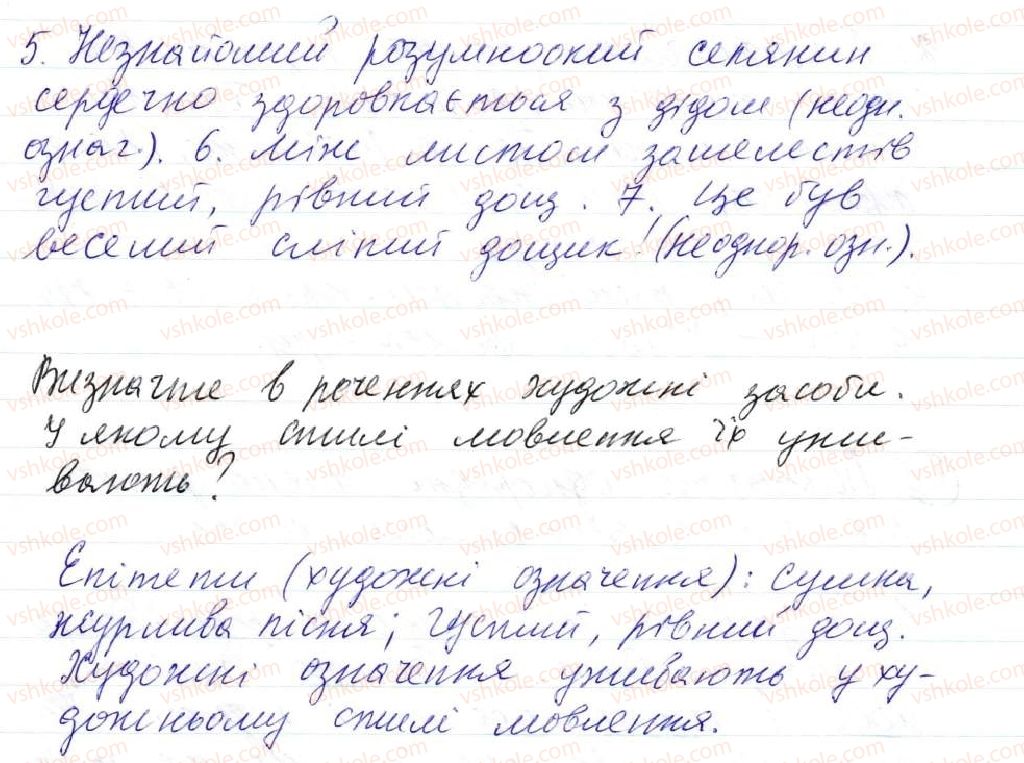 5. Незнайомий розумноокий селянин
сердечно здоровкається з дідом (неодн.
означ.). 6. Між листом зашелестів
густий, рівний дощ. 7. Це був
веселий сліпий дощик! (неоднор. озн.).
Визначте в реченнях художні засоби.
У якому стилі мовлення їх ужи-
вають?
Епітети (художні означення): сумна,
журлива пісня; густий, рівний дощ.
Художні означення уживають у ху-
дожньому стилі мовлення.
vshkole.com